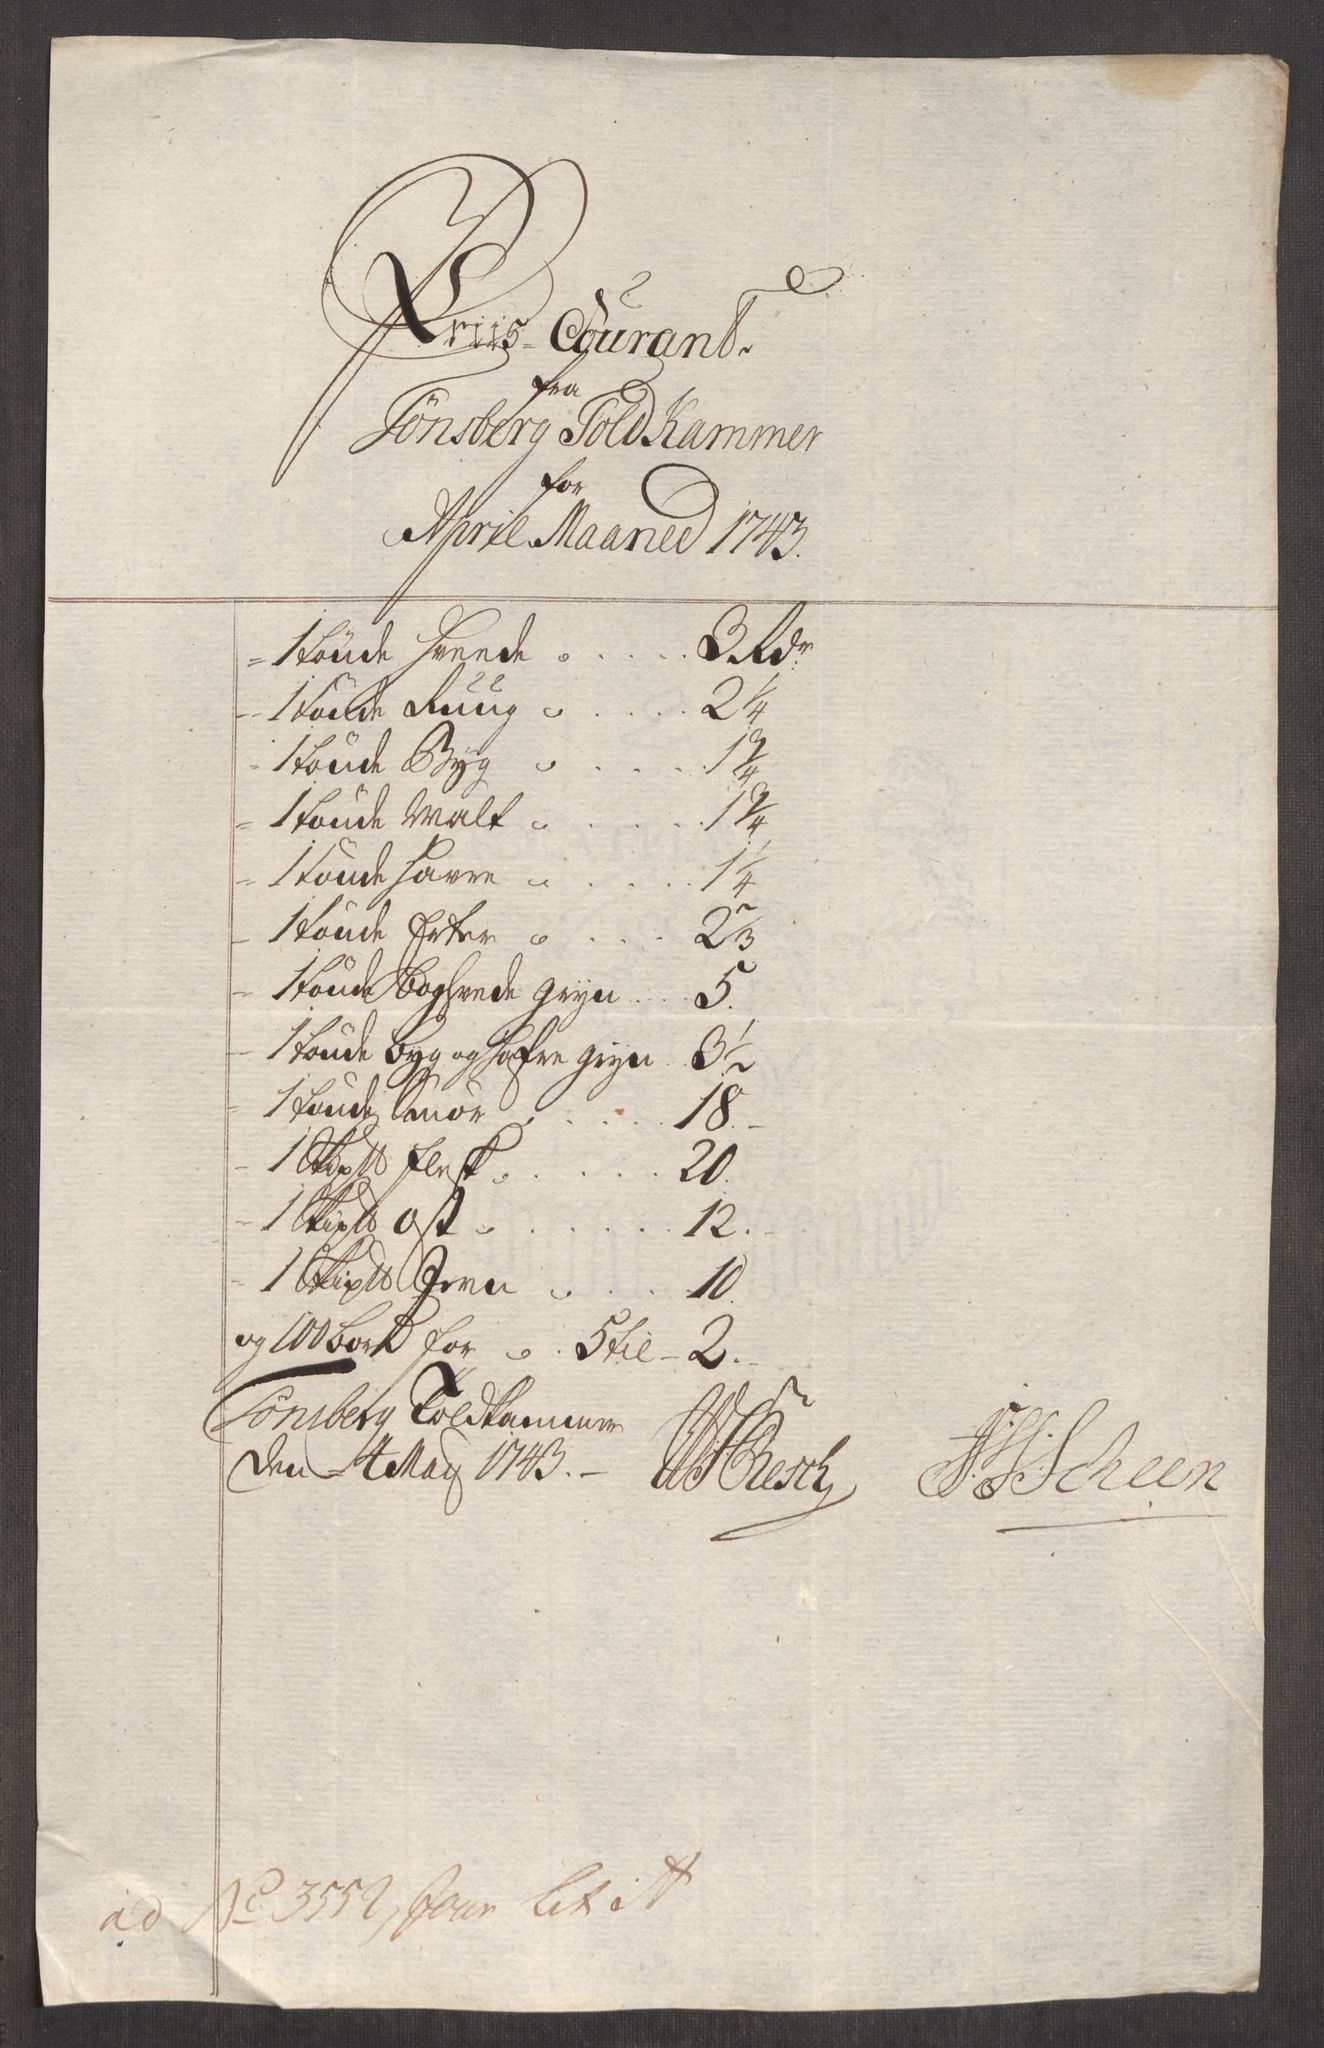 Priis-Courant.
fra
Tönsberg Told Kammer
for
April Maaned 1743.
1 tönde Hvede 3 Rdr
1 tönde Ruug 2 1/4
1 tönde Byg 1 3/4
1 tönde Malt 1 3/4
1 tönde Havre 1 1/4
1 tönde Erter 2 2/3
1 tönde boghvede gryn 5.
1 tönde byg og Hafre gryn 3 1/2
1 tönde Smör 18.
1 Skip℔ flesk 20.
1 Skip℔ Ost 12.
1 Skip℔ Jern 10.
og 100 bord for 5 til 2.
Tönsberg Toldkammer
den 4 May 1743. Resch Scheen
ad No 3552, Jour Lit A